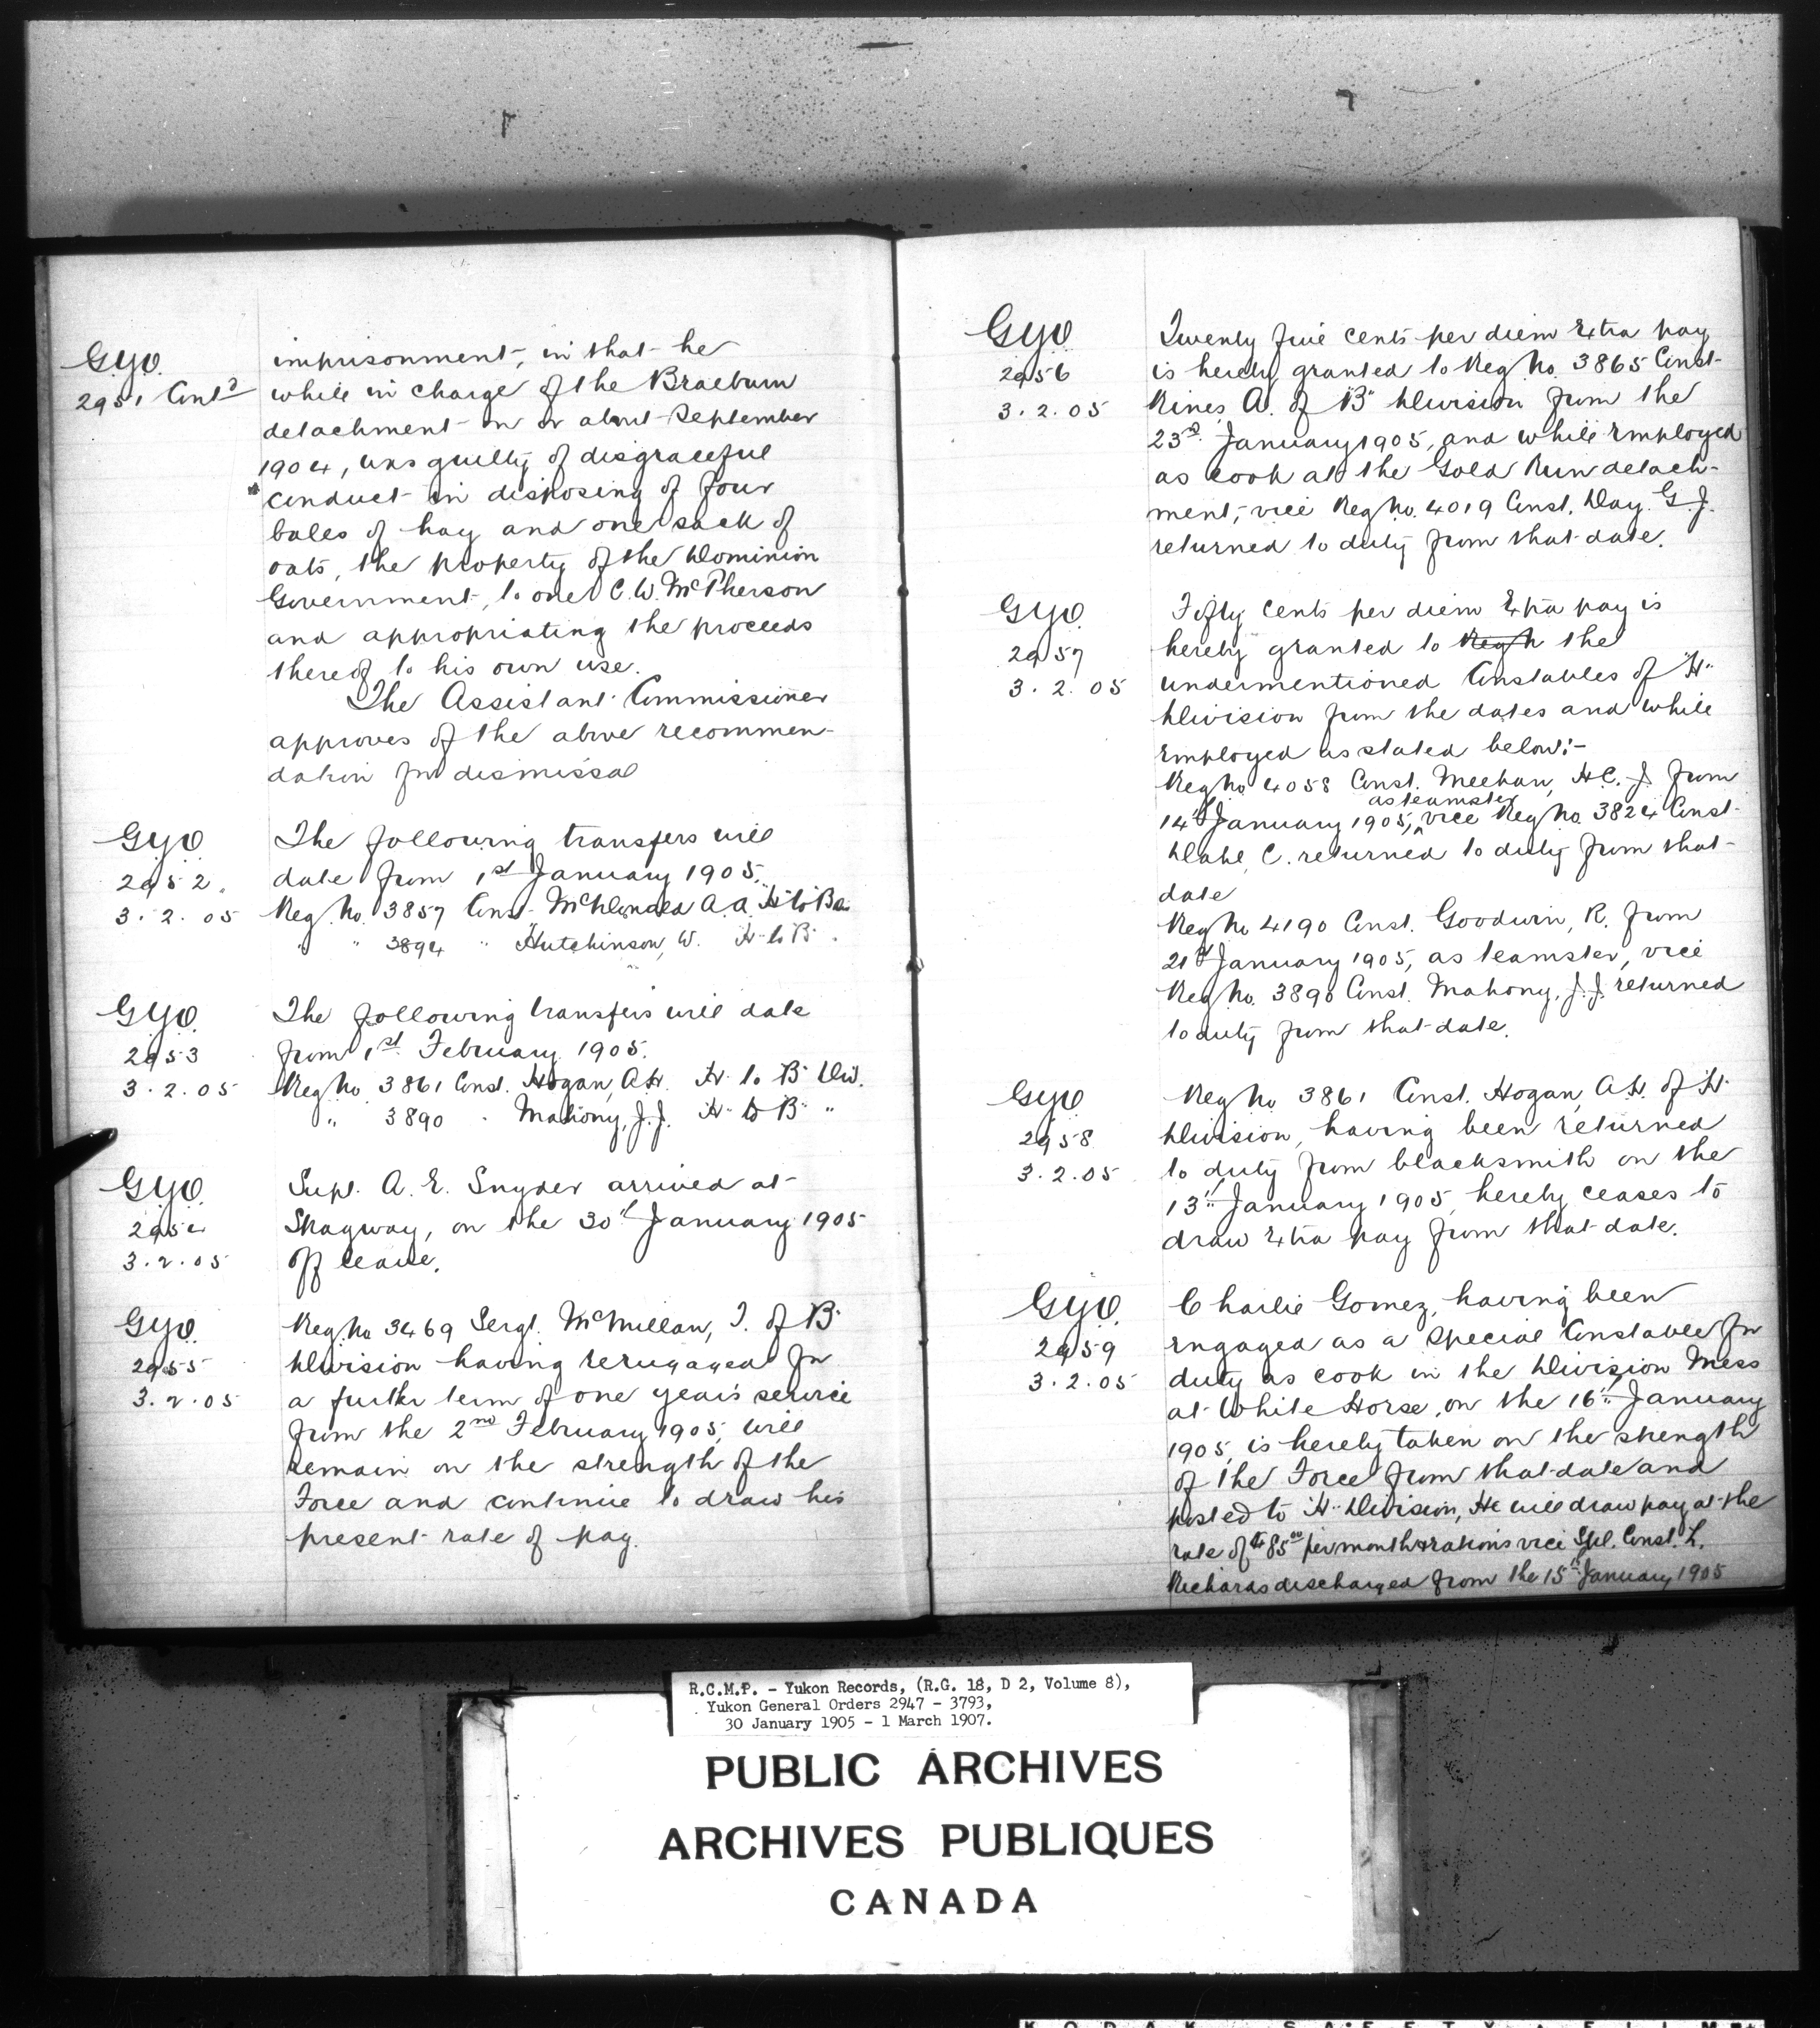 G.Y.O.
2951 Contd
imprisonment, in that he
while in charge of the Braeburn
detachment on or about September
1904, was guilty of disgraceful
conduct in disposing of four
bales of hay and one sack of
oats, the property of the Dominion
Government, to one C.W. McPherson
and appropriating the proceeds
thereof to his own use.
The Assistant Commissioner
approves of the above recommen-
dation for dismissal
G.Y.O.
2952.
3.2.05
The following transfers will
date from 1st January 1905.
Reg. No. 3857 Const. McDonald A.A. "H" to B
" " 3894 " Hutchinson, W. H to B "
G.Y.O.
2953
3.2.05
The following transfers will date
from 1st February 1905.
Reg No. 3861 Const. Hogan, A.H. H to B Div.
" 3890 " Mahony, J.J. H to B "
G.Y.O.
2954
3.2.05
Supt. A. E. Snyder arrived at
Skagway, on the 30th January 1905
off leave.
G.Y.O.
2955
3.2.05
Reg. No 3469 Sergt. McMillan, J. of B
Division having rengaged for
a further term of one year's service
from the 2nd February 1905, will
remain on the strength of the
Force and continue to draw his
present rate of pay.
G.Y.O.
2956
3.2.05
Twenty five cents per diem Extra pay
is hereby granted to Reg. No. 3865 Const.
Rines, A. of "B" Division from the
23rd January 1905, and while Employed
as cook at the Gold Run detach-
ment, vice Reg No. 4019 Const. Day. G.J.
returned to duty from that date.
G.Y.O.
2957
3.2.05
Fifty cents per diem Extra pay is
hereby granted to Reg N the
undermentioned Constables of "H"
Division from the dates and while
Employed as stated below:-
Reg No 4058 Const. Meehan, H.C.J. from
as teamster
14th January 1905, vice Reg No. 3824 Const.
Blake, C. returned to duty from that
date
Reg No 4190 Const. Goodwin, R. from
21st January 1905, as teamster, vice
Reg No. 3890 Const. Mahony, J.J. returned
to duty from that date.
G.Y.O.
2958
3.2.05
Reg No 3861 Const. Hogan, A.H. of H
Division, having been returned
to duty from blacksmith on the
13th January 1905, hereby ceases to
draw Extra pay from that date.
G.Y.O.
2959
3.2.05
Charlie Gomez, having been
Engaged as a Special Constable for
duty as cook in the Division Mess
at White Horse, on the 16th January
1905, is hereby taken on the strength
of the Force from that date and
posted to "H" Division, He will draw pay at the
rate of $85.00 per month & rations vice Spl. Const. L.
Richards discharged from the 15th January 1905
R.C.M.P. - Yukon Records, (R.G. 18, D 2, Volume 8),
Yukon General Orders 2947 - 3793,
30 January 1905 - 1 March 1907.
PUBLIC ARCHIVES
ARCHIVES PUBLIQUES
CANADA
KODAK SAFETY FILM